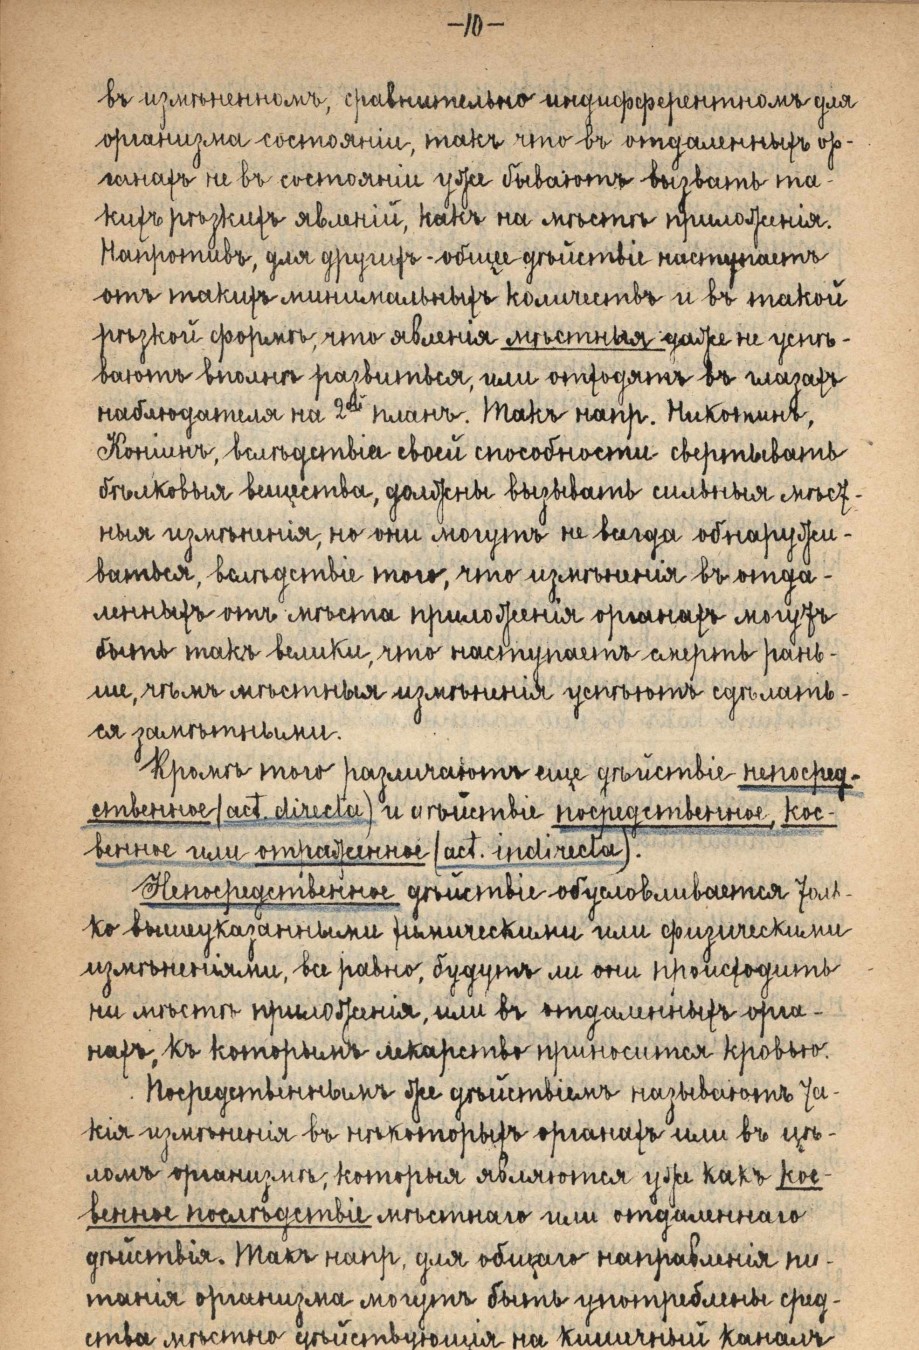 —10—
въ измѣненномъ, сравнительно индифферентномъ для
организма состояніи, такъ что въ отдаленныхъ ор-
ганахъ не въ состояніи уже бываютъ вызвать та-
кихъ рѣзкихъ явленій, какъ на мѣстѣ приложенія.
Напротивъ, для другихъ - общее дѣйствіе наступаетъ
отъ такихъ минимальныхъ количествъ и въ такой
рѣзкой формѣ, что явленія мѣстныя даже не успѣ-
ваютъ вполнѣ развиться, или отходятъ въ глазахъ
наблюдателя на 2ой планъ. Такъ напр. Никотинъ,
Коніинъ, вслѣдствіе своей способности свертывать
бѣлковыя вещества, должны вызывать сильныя мѣст-
ныя измѣненія, но они могутъ не всегда обнаружи-
ваться, вслѣдствіе того, что измѣненія въ отда-
ленныхъ отъ мѣста приложенія органахъ могутъ
быть такъ велики, что наступаетъ смерть рань-
ше, чѣмъ мѣстныя измѣненія успѣютъ сдѣлать-
ся замѣтными.
Кромѣ того различаютъ еще дѣйствіе непосред-
ственное (act. directa) и дѣйствіе посредственное, кос-
венное или отраженное (act. indirecta).
Непосредственное дѣйствіе обусловливается толь-
ко вышеуказанными химическими или физическими
измѣненіями, все равно, будутъ ли они происходить
ни мѣстѣ приложенія, или въ отдаленныхъ орга-
нахъ, къ которымъ лекарство приносится кровью.
Посредственнымъ же дѣйствіемъ называютъ та-
кія измѣненія въ нѣкоторыхъ органахъ или въ цѣ-
ломъ организмѣ, которыя являются уже какъ кос-
венное послѣдствіе мѣстнаго или отдаленнаго
дѣйствія. Такъ напр, для общаго направленія пи-
танія организма могутъ быть употреблены сред-
ства мѣстно дѣйствующія на кишечный каналъ